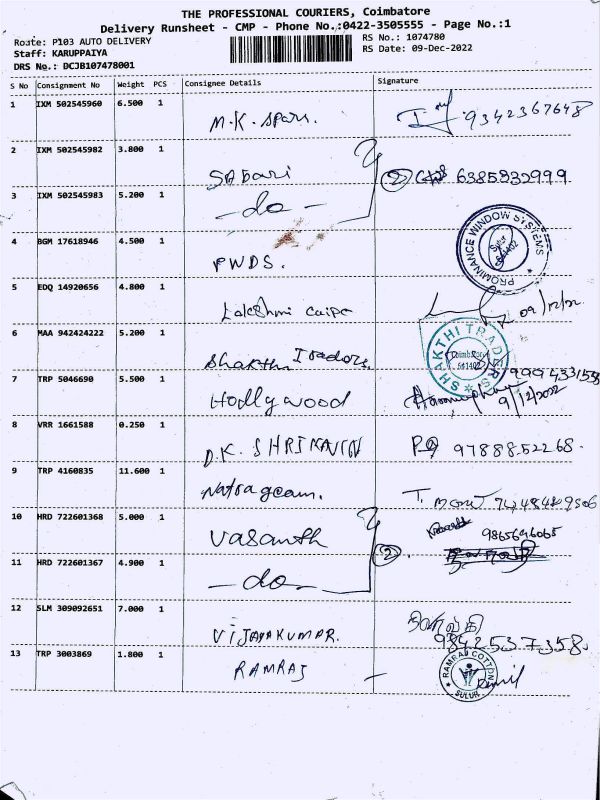 THE PROFESSIONAL COURIERS, Coimbatore
Delivery Runsheet - CMP - Phone No.:0422-3505555 - Page No.:1
Route: P103 AUTO DELIVERY
Staff: KARUPPAIYA
DRS No.: DCJB107478001
RS No.: 1074780
RS Date: 09-Dec-2022
S No Consignment No Weight PCS Consignee Details Signature
1 IXM 502545960 6.500 1 M.K. Spars. 9342367648
2 IXM 502545982 3.800 1 SABari 2 6385932999
3 IXM 502545983 5.200 1 -do-
4 BGM 17618946 4.500 1 PWDS.
PROMINANCE WINDOW SYSTEMS
Sulur
641402
5 EDQ 14920656 4.800 1 Lakshmi 09/12/22
6 MAA 942424222 5.200 1 Shakthi Traders.
SHAKTHI TRADERS
Coimbatore
641402
7 TRP 5046690 5.500 1 Hollywood 9/12/2022
8 VRR 1661588 0.250 1 D.K. 9788852268.
9 TRP 4160835 11.600 1
10 HRD 722601368 5.000 1 Vasanth 9865646065
11 HRD 722601367 4.900 1 -do- 2
12 SLM 309092651 7.000 1 VIJAYAKUMAR. 9842537358.
13 TRP 3003869 1.800 1 RAMRAJ
RAMRAJ COTTON
SULUR